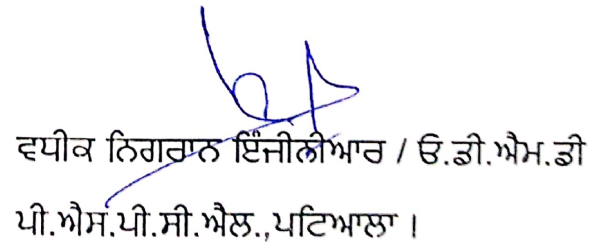 ਵਧੀਕ ਨਿਗਰਾਨ ਇੰਜੀਨੀਆਰ / ਓ.ਡੀ.ਐਮ.ਡੀ
ਪੀ.ਐਸ.ਪੀ.ਸੀ.ਐਲ.,ਪਟਿਆਲਾ ।